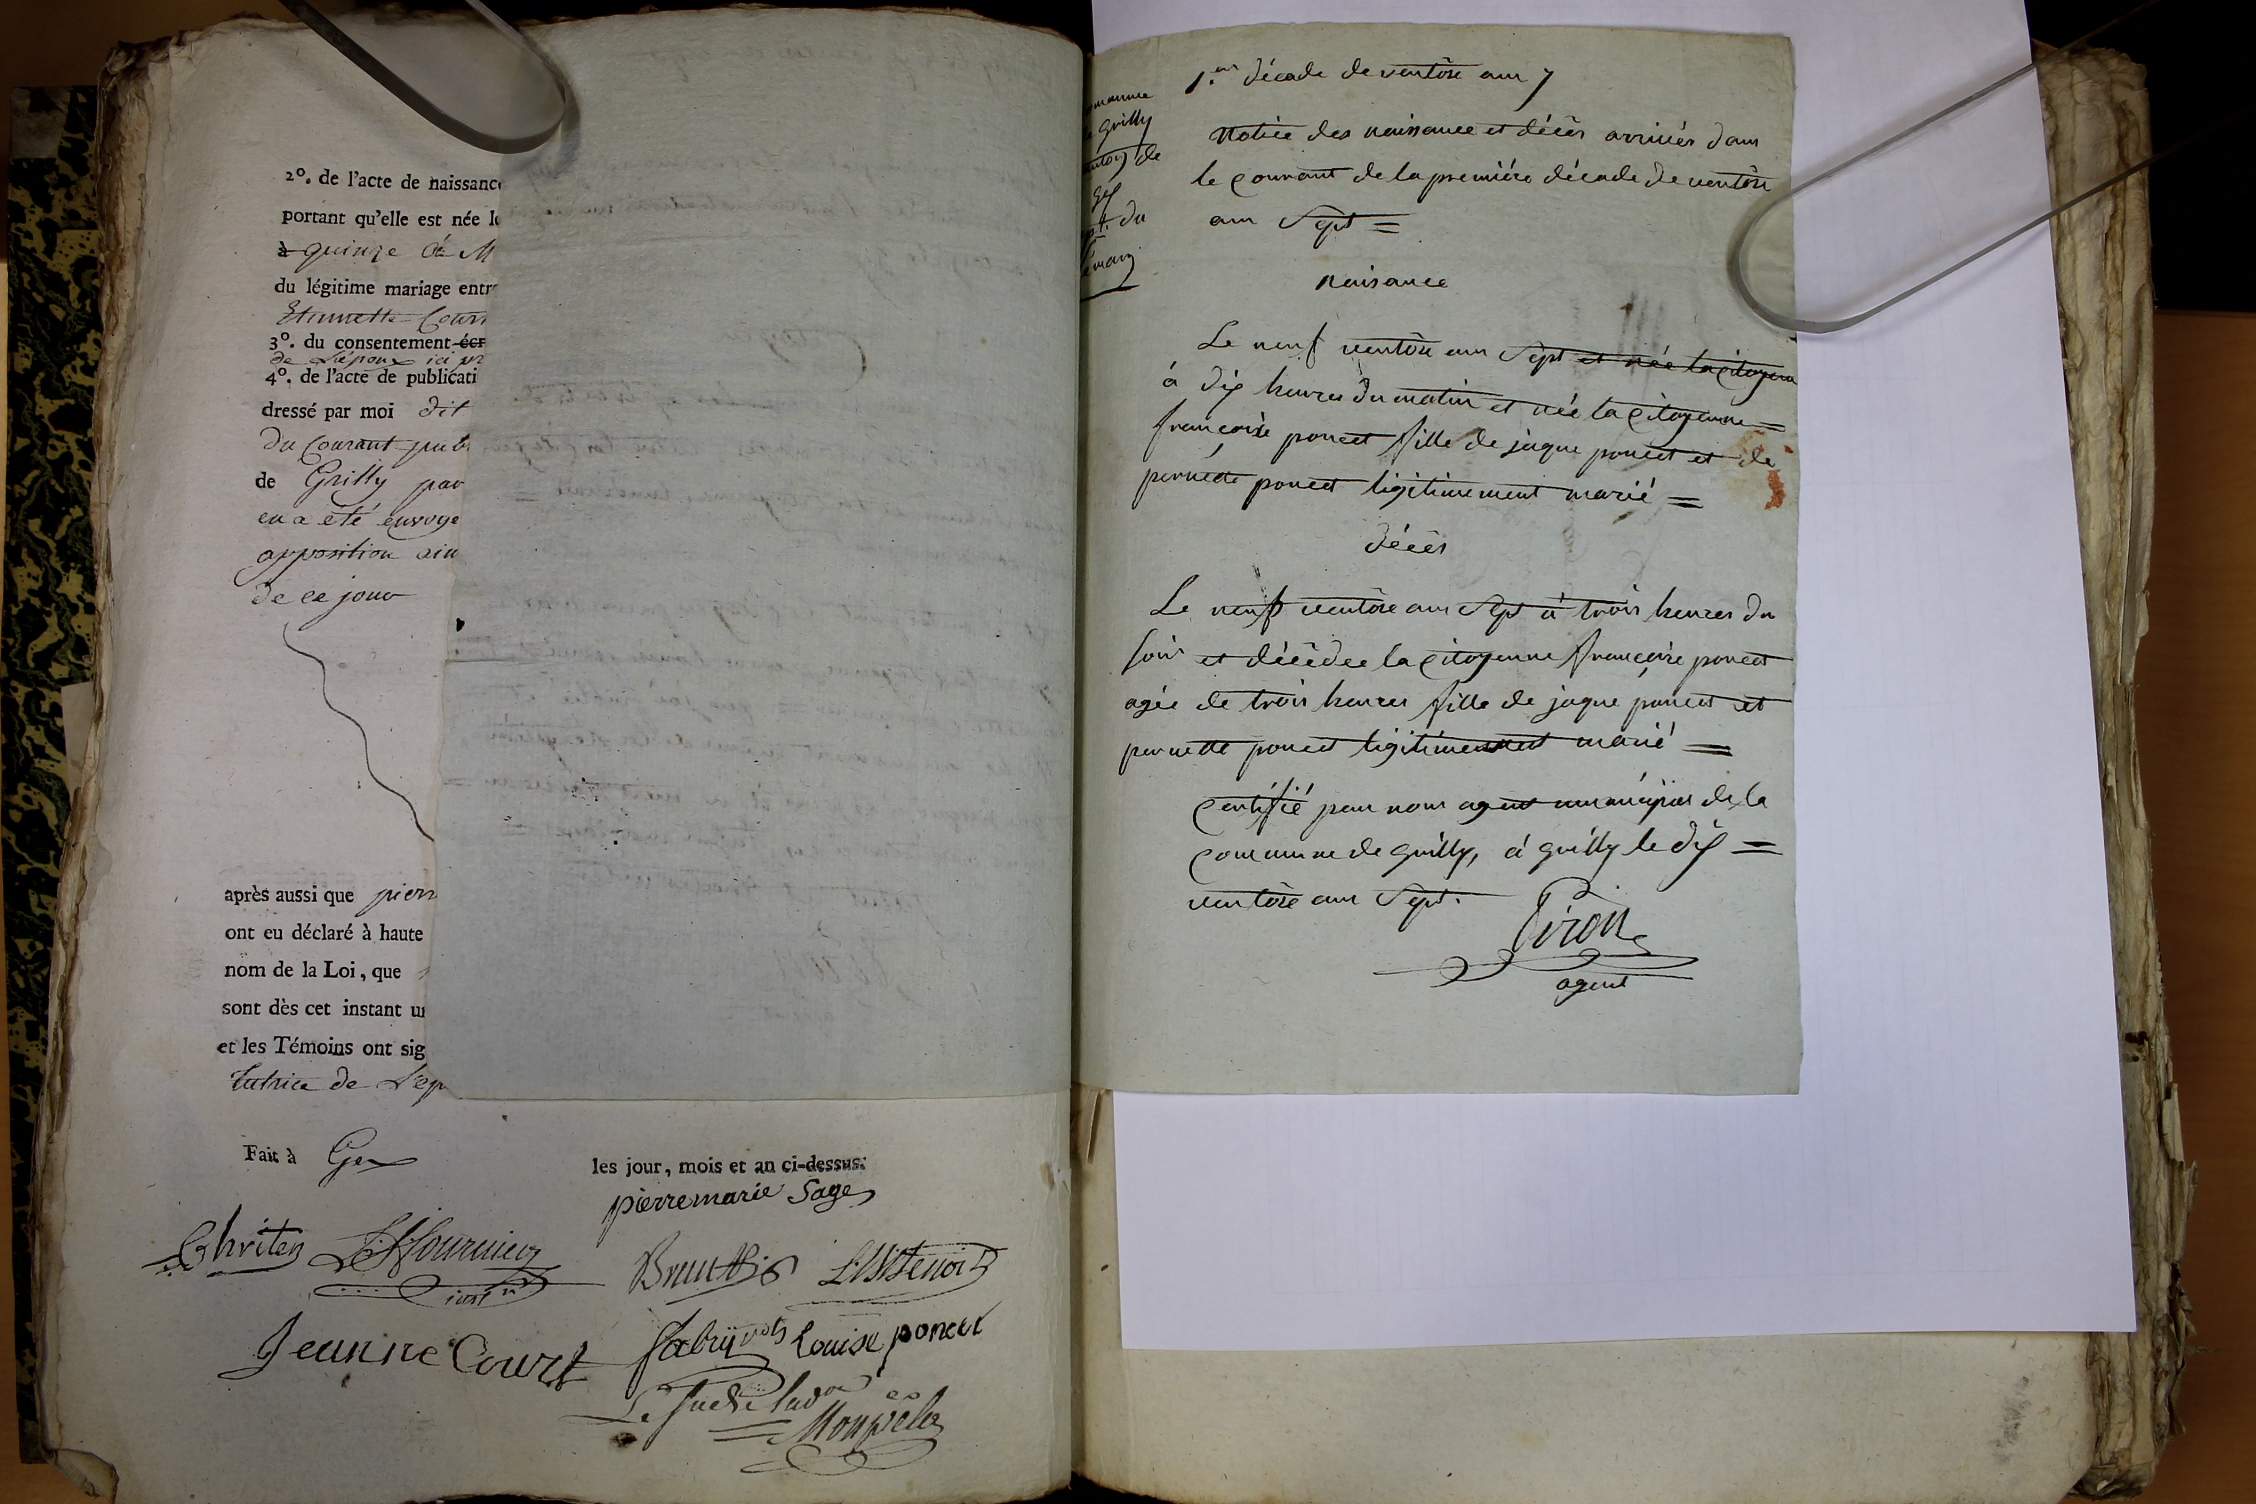 2º. de l'acte de naissance
portant qu'elle est née le
à quinze
du légitime mariage entre
Etiennette Court
3º. du consentement
de L'époux ici
4º. de l'acte de publicati
dressé par moi dit
du Courant pub
de Grilly par
en a été envoyé
opposition ain
de ce jour
après aussi que pierr
ont eu déclaré à haute
nom de la Loi, que
sont dès cet instant u
et les Témoins ont sig
tutrice de L'ep
Fait à Gex les jour, mois et an ci-dessus.
pierre marie Sage
Jeanne Court
Louise poncet
1.er décade de ventôse ann 7
ommune
e Grilly
anton de
Gex
pt. du
éman
Notice des naissance et décès arrivés dans
le courant de la première décade de ventôse
ann Sept =
Naisance
Le neuf ventôse ann Sept et née la Citoyenne
à dix heures du matin et née la Citoyenne =
françoise poncet fille de jaque poncet et de
pernette poncet ligitimement marié =
décès
Le neuf ventôse ann Sept à trois heures du
soir et décèdée la Citoyenne françoise poncet
agée de trois heures fille de jaque poncet et
pernette poncet ligitimement marié =
Certifié par nous agent municipal de la
Commune de grilly, à grilly le dix =
ventôse ann Sept.
Piron
agent